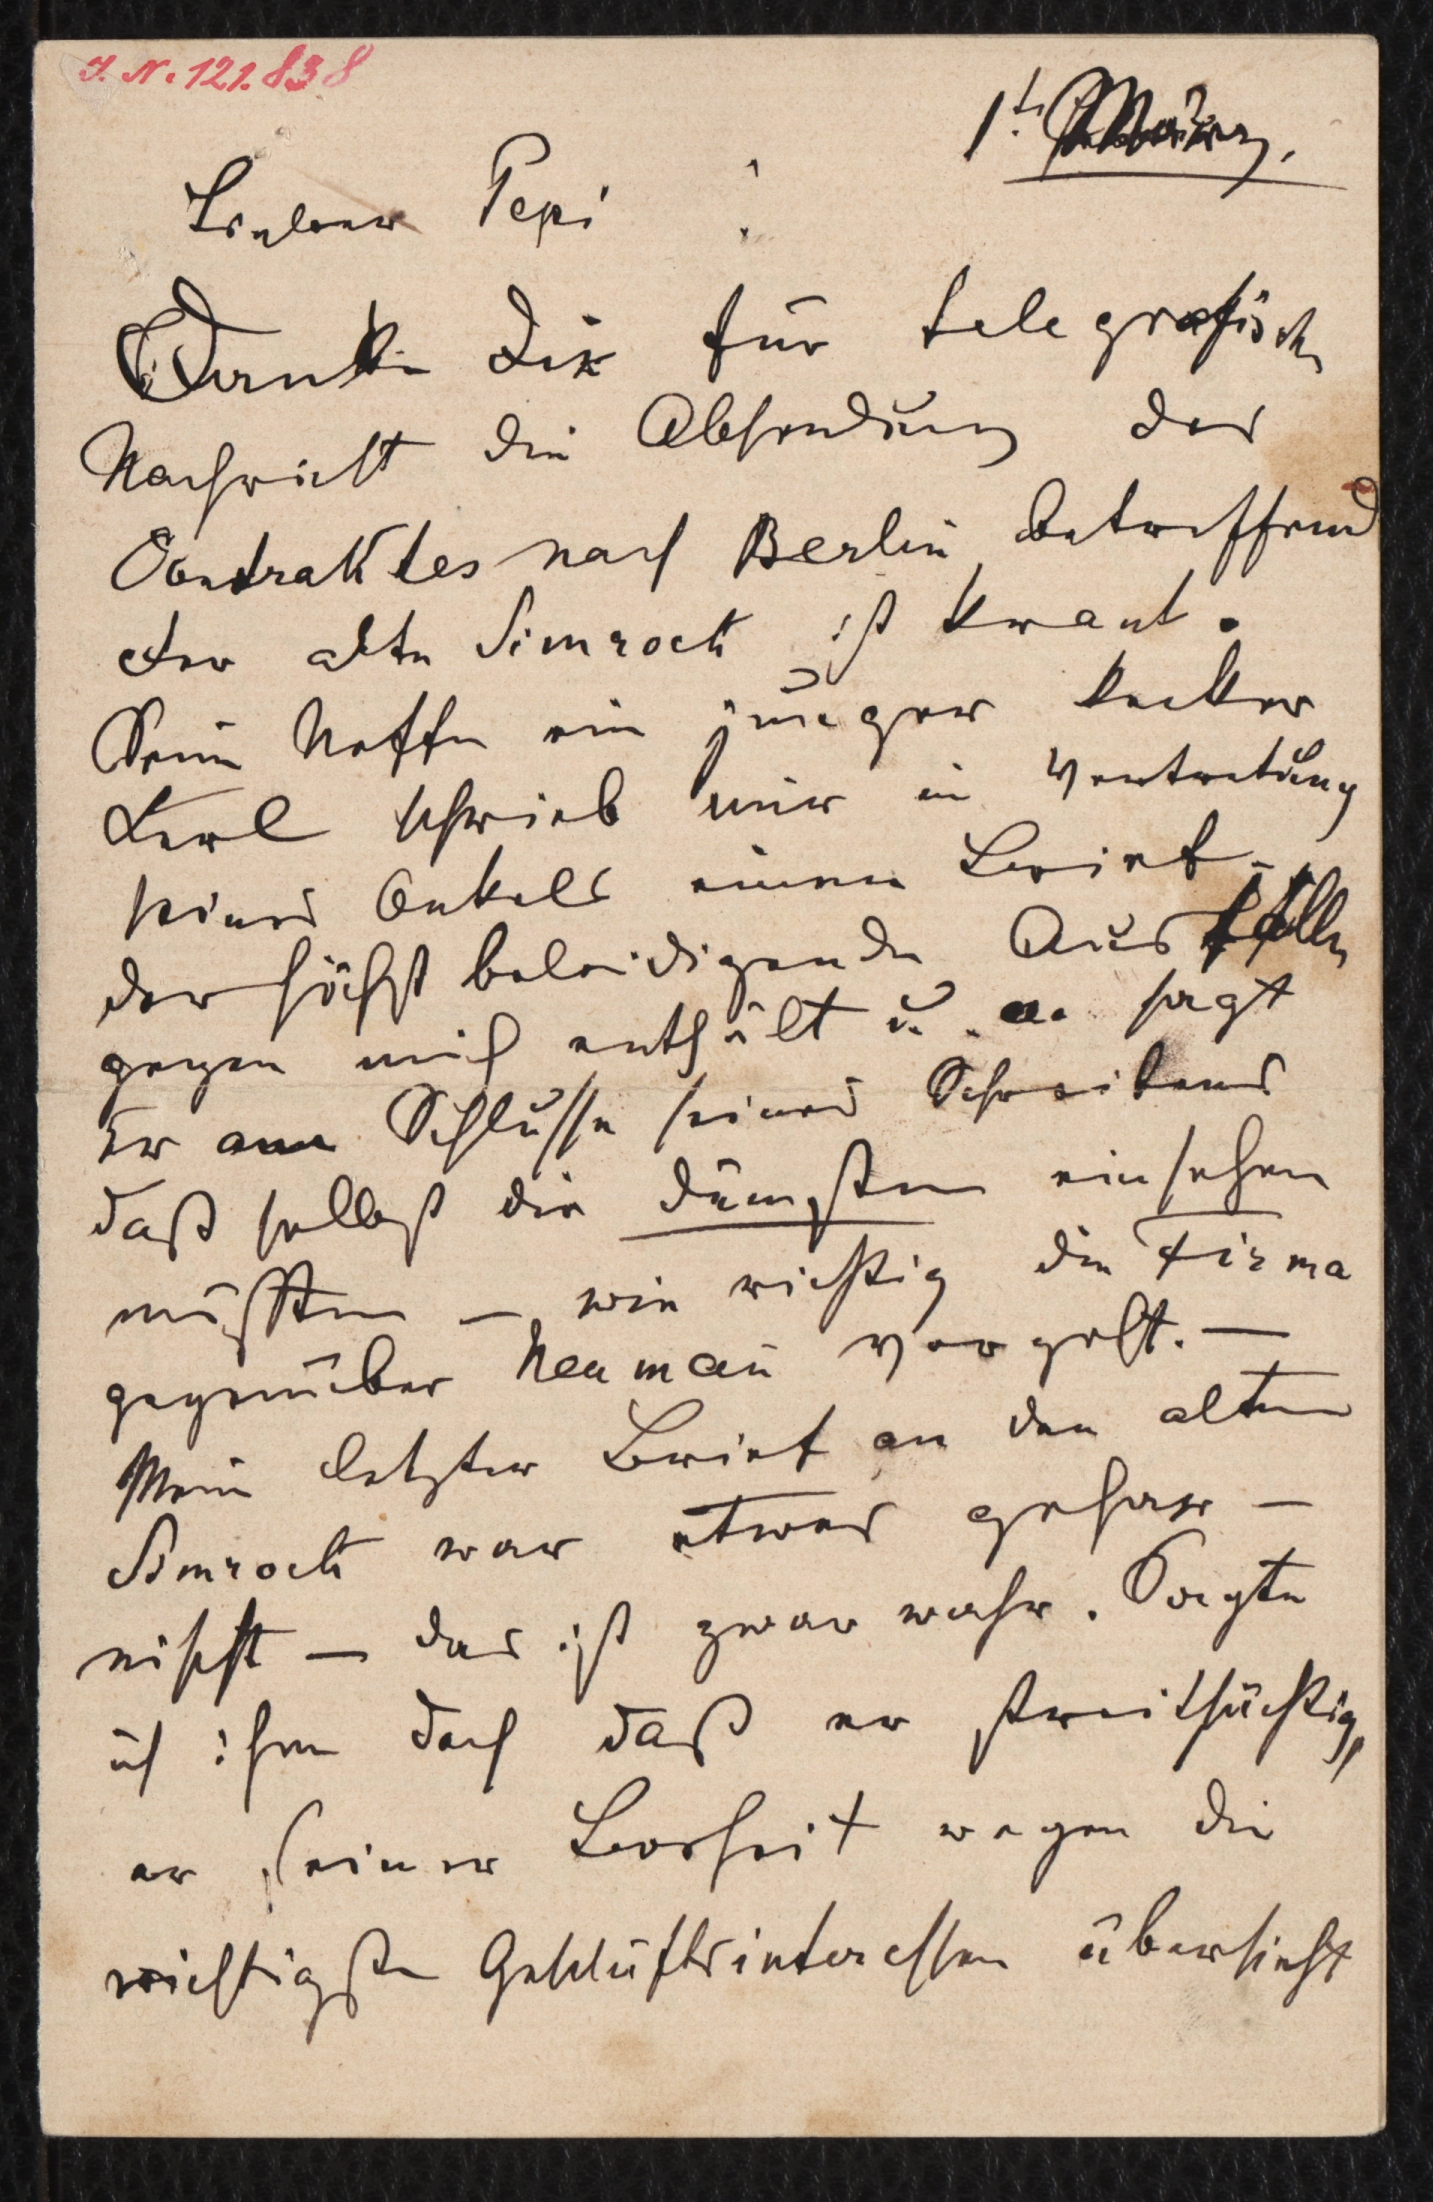 I. N. 121.838
1t. März.
Lieber Pepi !
Danke Dir für telegrafische
Nachricht die Absendung des
Contraktes nach Berlin betreffend
der alte Simrock ist krank.
Sein Neffe ein junger kecker
Kerl schrieb mir in Vertretung
seines Onkels einen Brief –
der höchst beleidigende Ausfälle
gegen mich enthält u. a. sagt
Er am Schlusse seines Schreibens
daß selbst die dümsten einsehen
müssten – wie richtig die Firma
gegenüber Neuman̄ vorgeht. –
Mein letzter Brief an den alten
Simrock war etwas gehar-
nischt – das ist zwar wahr. Sagte
ich ihm doch daß er streitsüchtig,
er seiner Bosheit wegen die
wichtigste Geschäftsinteressen übersieht